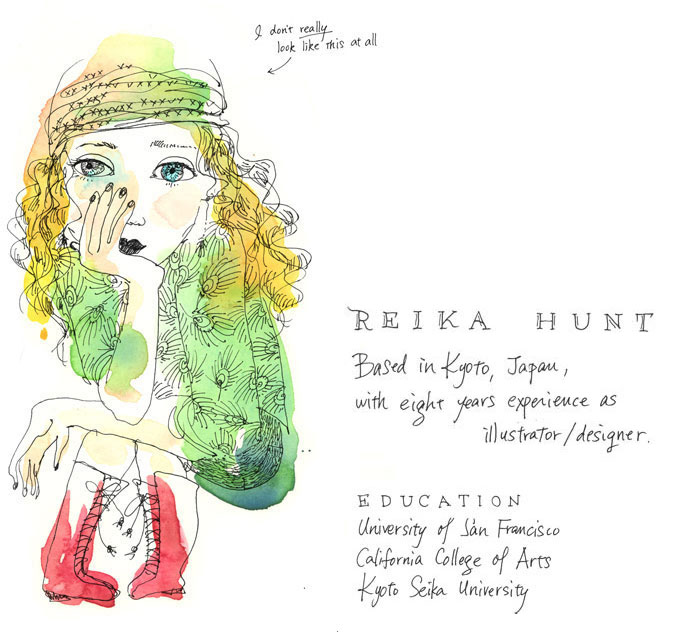 I don't really
look like this at all
REIKA HUNT
Based in Kyoto, Japan,
with eight years experience as
illustrator/designer.
EDUCATION
University of San Francisco
California College of Arts
Kyoto Seika University